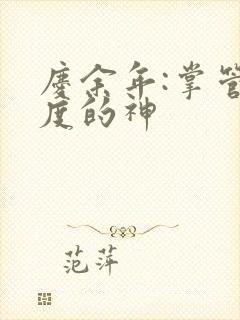 庆余年:掌管
度的神
范萍